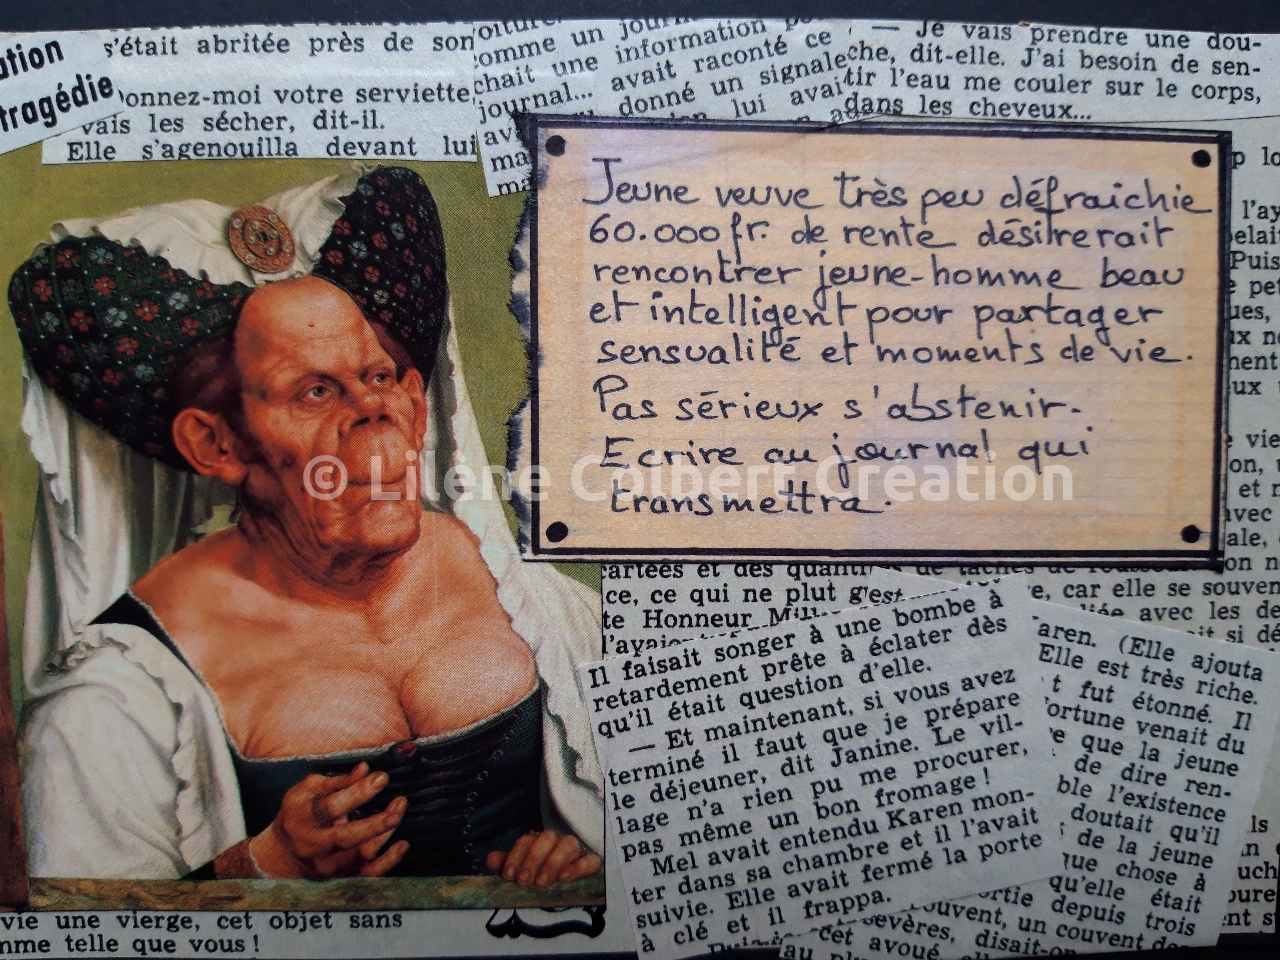 ation
tragédie
s'était abritée près de son
onnez-moi votre serviette,
vais les sécher, dit-il.
Elle s'agenouilla devant lui
oiture.
omme un journ
chait une information
journal... avait raconté ce
donné un signale
lui avait
— Je vais prendre une dou-
che, dit-elle. J'ai besoin de sen-
tir l'eau me couler sur le corps,
dans les cheveux...
Jeune veuve très peu défraîchie
60.000 fr. de rente désirerait
rencontrer jeune-homme beau
et intelligent pour partager
sensualité et moments de vie.
Pas sérieux s'abstenir.
Ecrire au journal qui
transmettra.
© Lilène Colbert Création
cartées et des quantit
ce, ce qui ne plut
te Honneur
l'avai
e, car elle se souven
avec les de
Il faisait songer à une bombe à
retardement prête à éclater dès
qu'il était question d'elle.
— Et maintenant, si vous avez
terminé il faut que je prépare
le déjeuner, dit Janine. Le vil-
lage n'a rien pu me procurer,
pas même un bon fromage !
Mel avait entendu Karen mon-
ter dans sa chambre et il l'avait
suivie. Elle avait fermé la porte
à clé et il frappa.
aren. (Elle ajouta
Elle est très riche.
t fut étonné. Il
ortune venait du
e que la jeune
de dire ren-
ble l'existence
doutait qu'il
de la jeune
que chose à
qu'elle était
ortie depuis trois
ouvent, un couvent de
evères, disait-on
cet avoué
vie une vierge, cet objet sans
mme telle que vous !